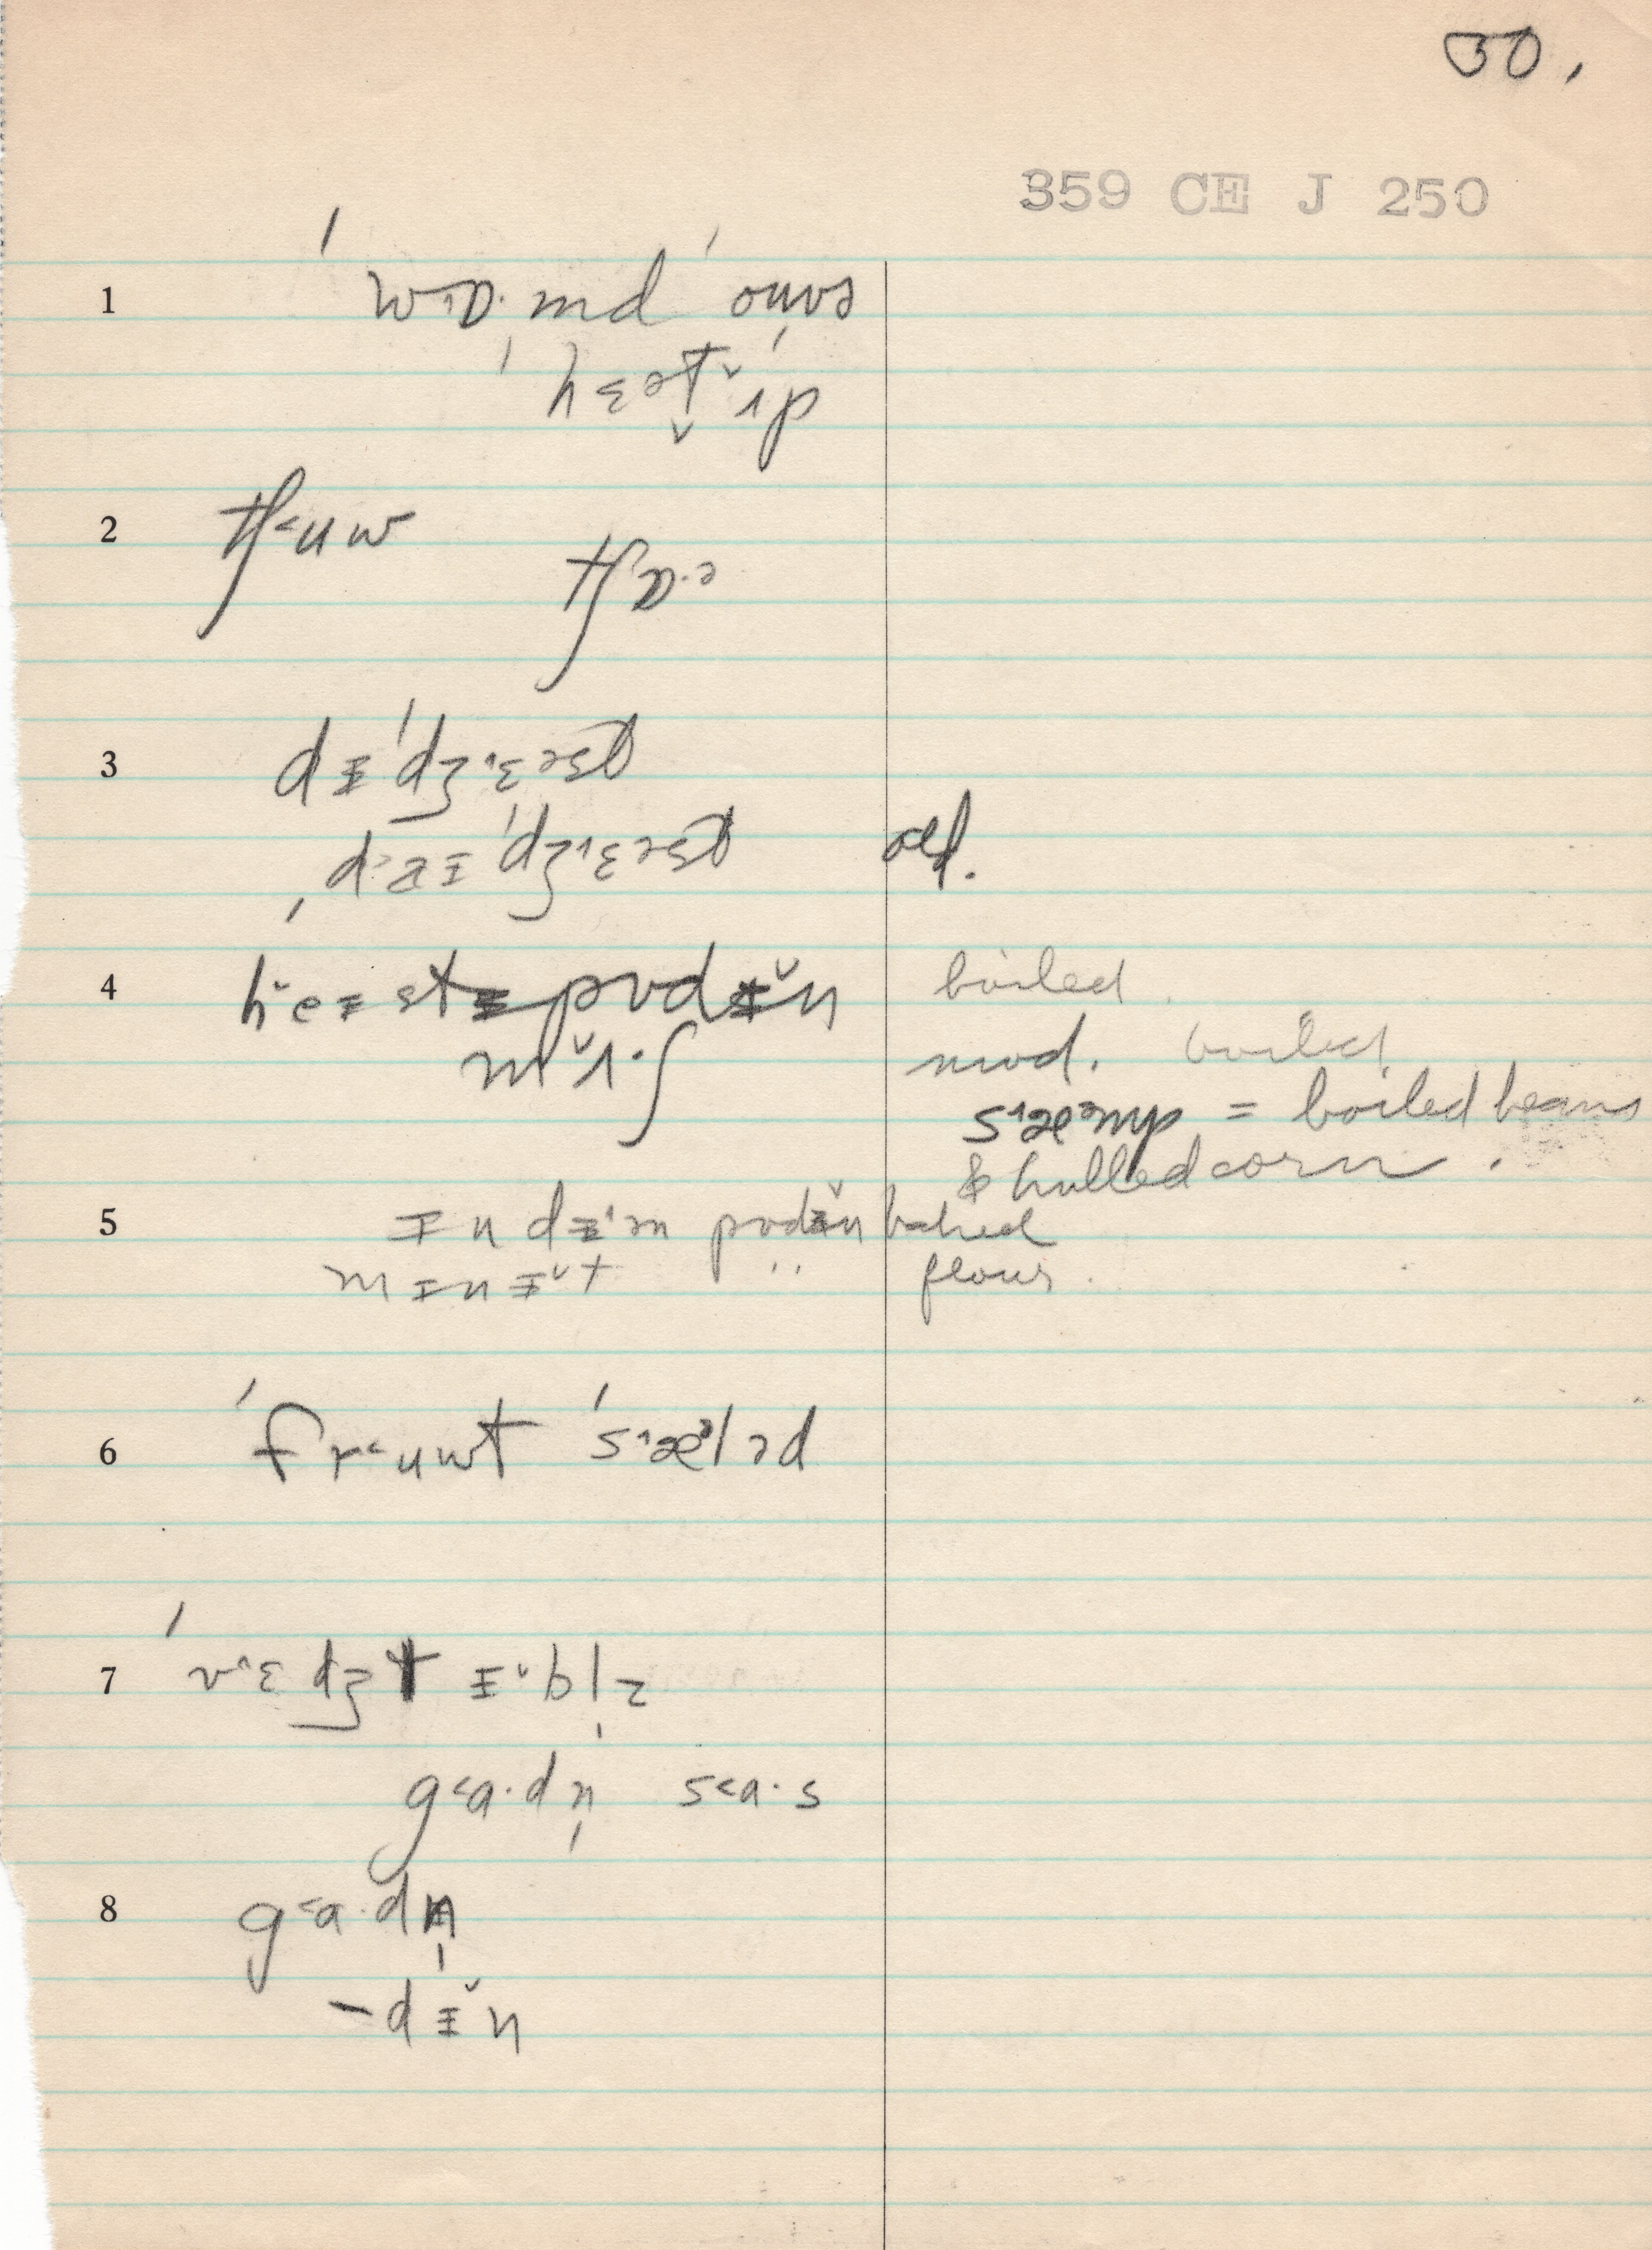 30.
359 CE J 250
1 ˈwɒ˔·md ˈoʊvə
ˈhɛət ˅ɪp
2 tʃ˂uw
tʃɒ·ə
3 dᵻˈdʒ˄ɛəst
ˌd˃aᵻˈdʒ˄ɛəst old.
4 h˅eᵻstᵻpʊdᵻ˅n boiled.
m˅ɪ·ʃ mod. boiled
s˄æəmp = boiled beans
& hulled corn.
5 ɪndᵻ˄ən pʊdᵻ˅n baked
mɪnᵻ˅t flour.
6 ˈfr˂uwt ˈs˄æələd
7 ˈv˄ɛdʒtᵻ˅bl̩z
g˂a·dn̩ s˂a·s
8 g˂a·dn̩
-dᵻ˅n